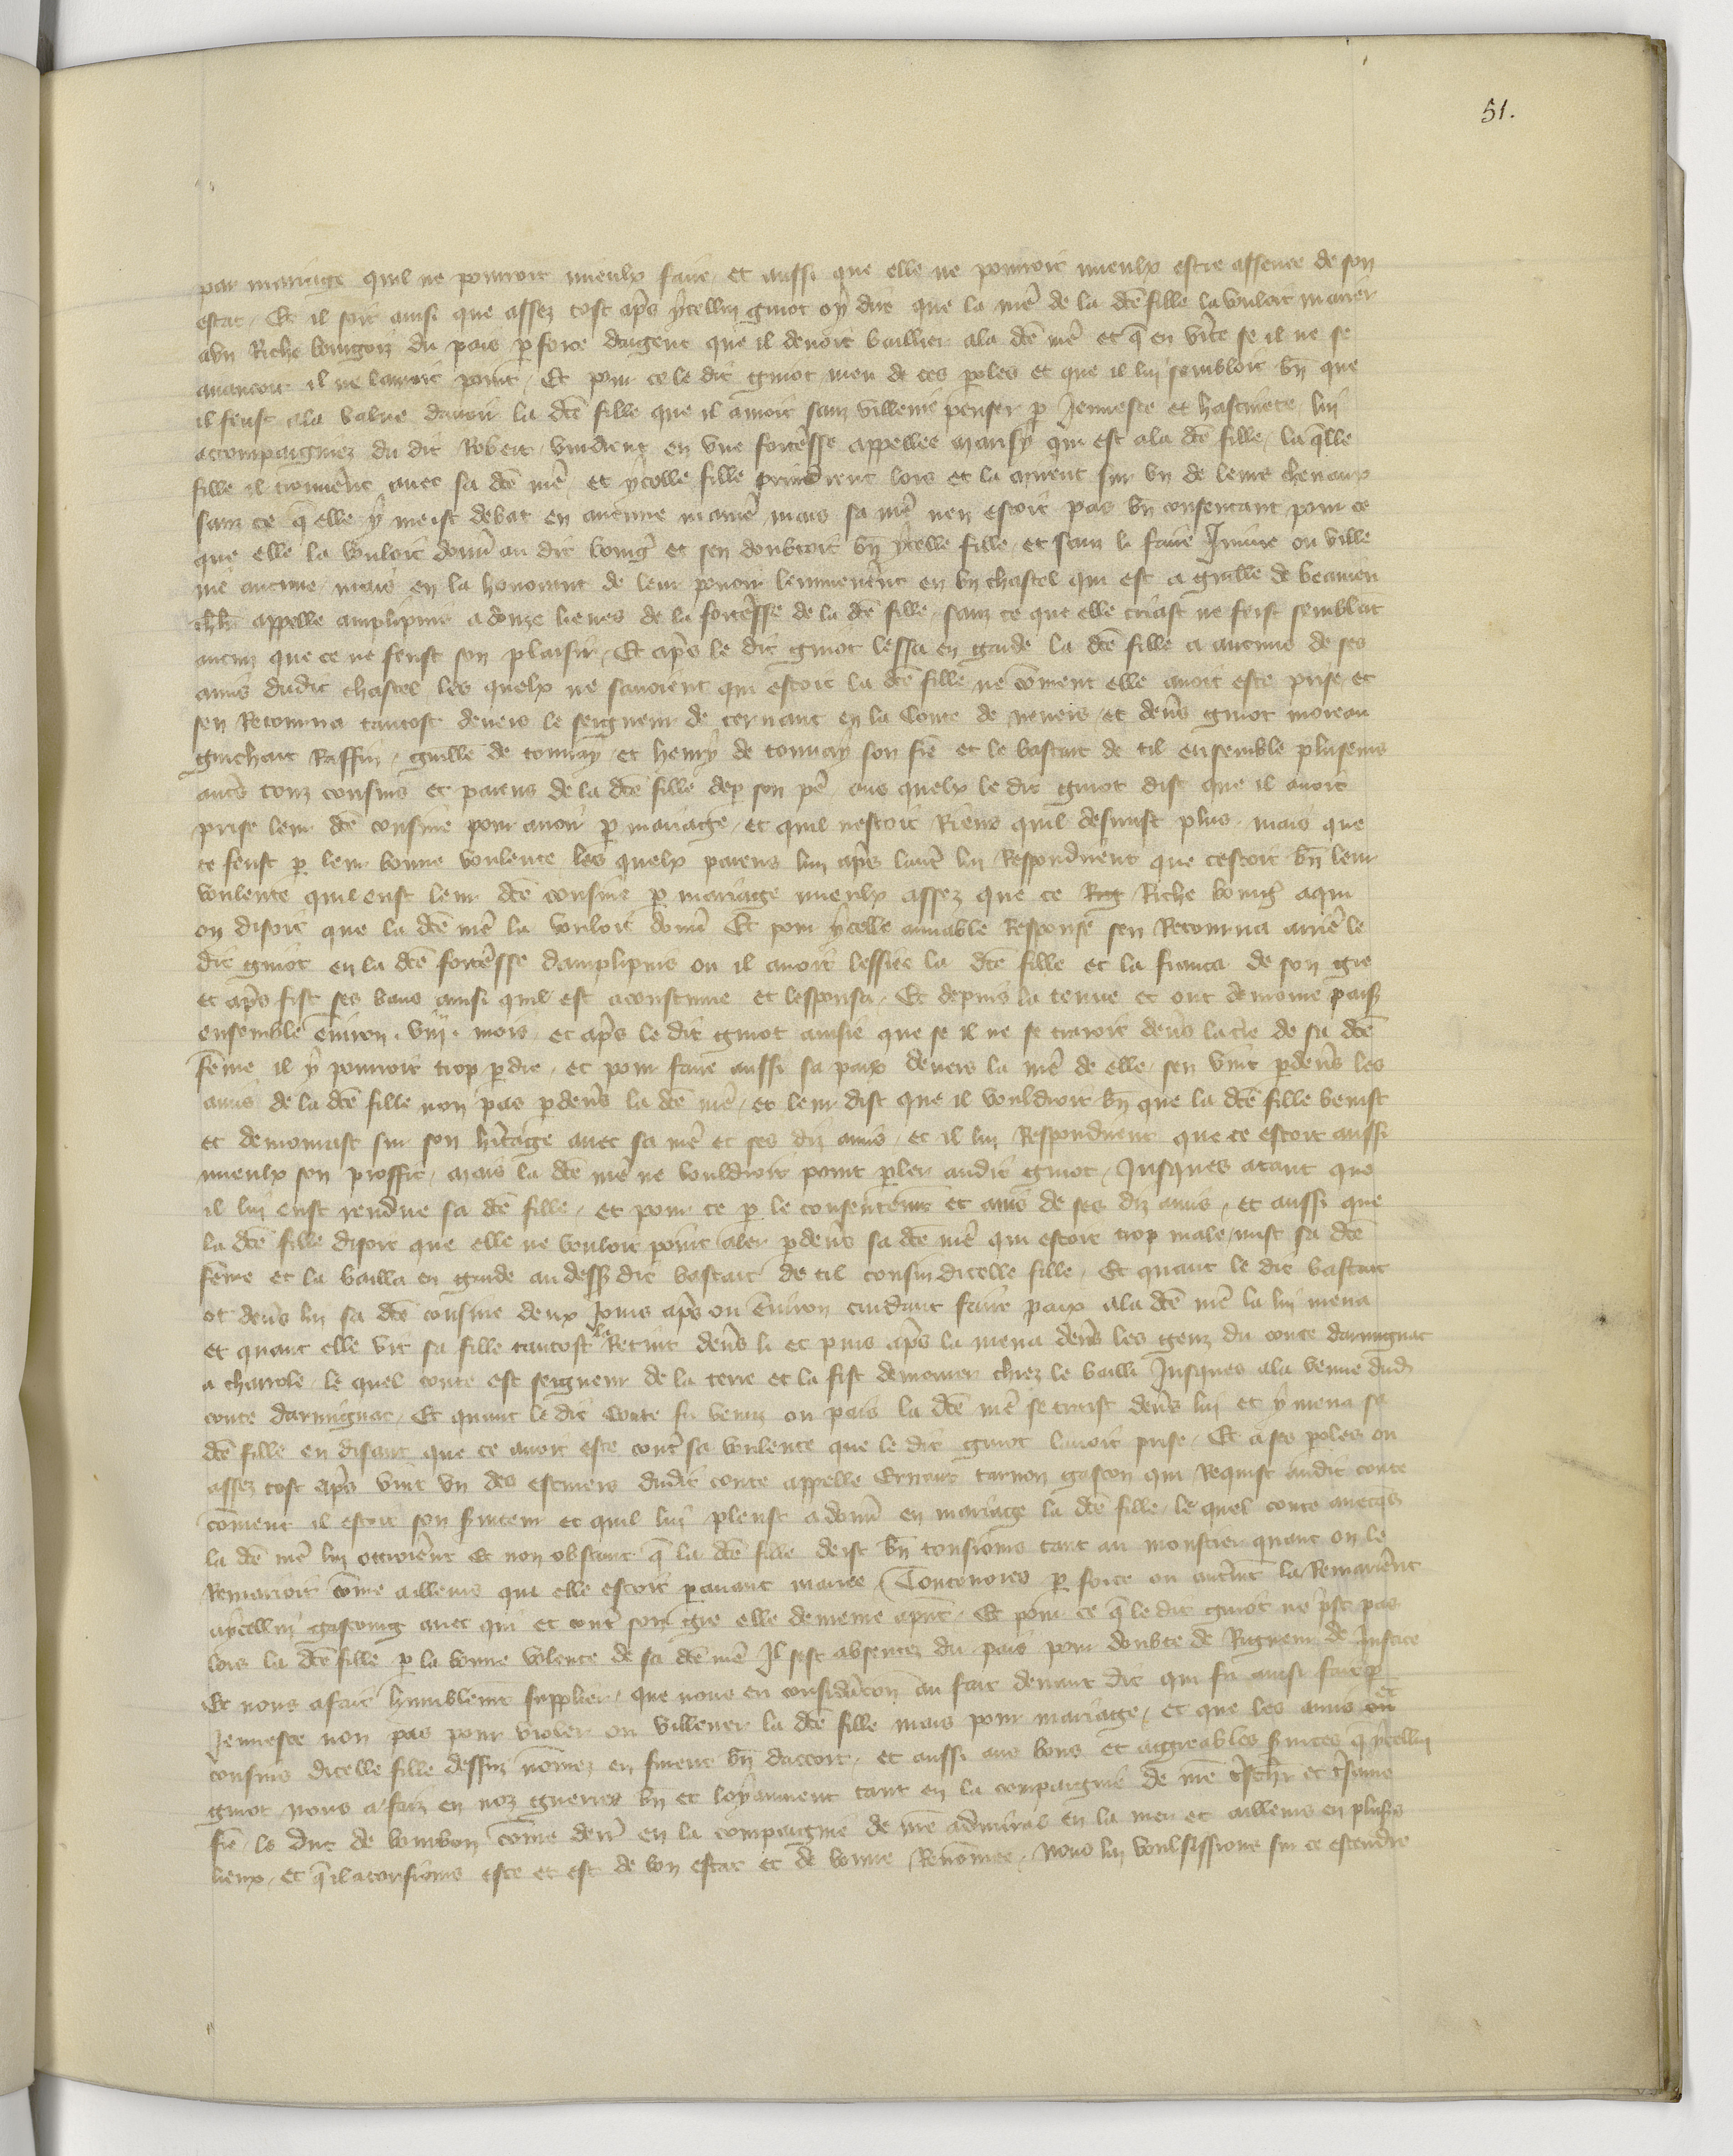 51.
par mariage quil ne pourroit mieulx faire et aussi que elle ne pourroit mieulx estre assenee de son
estat Et il soit ainsi que assez tost ap̃s ycellui guiot oy dire que la mẽ de la dc̃e fille la vouloit marier
a vn Riche bourgois du pais ꝑ force dargent que il devoit baillier ala dc̃e mẽ et q̃ en vite se il ne se
avancoit il ne lauroit point Et pour ce le dit guiot meu de ces ꝑoles et que il lui sembloit bñ que
il feust ala value davoir la dc̃e fille que il amoit sanz villenie penser ꝑ Jennesce et hastivete lui
accompaigniez du dit Robert vindrent en vne fort̃esse appellee marsy qui est ala dc̃e fille la q̃lle
fille il trouvẽrent avec sa dc̃e mẽ et ycelle fille prindrent lors et la mirent sur vn de leurs chevaux
sanz ce q̃ elle y meist debat en aucune maniẽ mais sa mẽ nen estoit pas bñ consentant pour ce
que elle la vouloit donñ au dit bourg̃ et sen doubtoit bñ ycelle fille et sanz li faire Iniure ou ville
nie aucune mais en la honorant de leur povoir lenmenẽrent en vn chastel qui est a guill̃e de beaujeu
ch̃lr appelle amplepuis a donze lieues de la fort̃esse de la dc̃e fille sanz ce que elle criast ne feist semblãt
aucun que ce ne feust son plaisir Et ap̃s le dit guiot lessa en garde la dc̃e fille a aucuns de ses
amis dudit chastel les quelx ne savoient qui estoit la dc̃e fille ne com̃ent elle avoit este prise et
sen Retourna tantost devers le seigneur de ternant en la Conte de nevers et dev̾s guiot moreau
guichart Raffin guill̃e de tournay et henry de tournay son fr̃e et le bastart de til ensemble pluseurs
autr̃s touz cousins et parens de la dc̃e fille dep̱ son pẽ aus quelx le dit guiot dist que il avoit
prise leur dc̃e cousine pour avoir ꝑ mariage et quil nestoit Riens quil desirast plus mais que
ce feust ꝑ leur bonne voulente les quelx parens lun ap̃s lautr̃ lui Respondirent que cestoit bñ leur
voulente quil eust leur dc̃e cousine ꝑ mariage mieulx assez que ce Rig Riche bourg̃ aqui
on disoit que la dc̃e mẽ la vouloit donñ Et pour ycelle amiable Response sen Retourna arriẽ le
dit guiot en la dc̃e fort̃esse damplepuis ou il avoit lessiee la dc̃e fille et la fianca de son gre
et ap̃s fist ses bans ainsi quil est acoustume et lespousa Et depuis la tenue et ont demoure paisĩ
ensemble environ viij mois et ap̃s le dit guiot avise que se il ne se traioit dev̾s la tr̃e de sa dc̃e
fem̃e il y pourroit trop ꝑdre et pour faire aussi sa paix devers la mẽ de elle sen vint ꝑdev̾s les
amis de la dc̃e fille non pas ꝑdev̾s la dc̃e mẽ et leur dist que il vouldroit bñ que la dc̃e fille venist
et demourast sur son hẽitage avec sa mẽ et ses diz amis et il lui Respondirent que ce estoit aussi
mieulx son proffit mais la dc̃e mẽ ne vouldroit point ꝑler audit guiot Iusques atant que
il lui eust rendue sa dc̃e fille et pour ce ꝑ le consentem̃t et avis de ses diz amis et aussi que
la dc̃e fille disoit que elle ne vouloit point aler ꝑdev̾s sa dc̃e mẽ qui estoit trop male mist sa dc̃e
fem̃e et la bailla en garde au dess̃ dit bastart de til cousin dicelle fille Et quant le dit bastart
ot dev̾s lui sa dc̃e cousine deux Jours ap̃s ou environ cuidant faire paix ala dc̃e mẽ la lui mena
et quant elle vit sa fille tantost la Retint dev̾s li et puis ap̃s la mena dev̾s les genz du conte darmignac
a charrole le quel conte est seigneur de la terre et la fist demourer chiez le bailli Jusques ala venue dud̃
conte darmignac Et quant le dit conte fu venuz ou pais la dc̃e mẽ se traist dev̾s lui et y mena sa
dc̃e fille en disant que ce avoit este contr̃ sa voulente que le dit guiot lavoit prise Et a ses ꝑoles ou
assez tost ap̃s vint vn des escuiers dudit conte appelle tarnon gascon qui Requist audit conte
com̃ent il estoit son s̾uiteur et quil lui pleust a donñ en mariage la dc̃e fille le quel conte avecq̃s
la dc̃e mẽ lui ottroiẽrent Et non obstant q̃ la dc̃e fille deist bñ tousiours tant au moustier quant on le
Remarioit com̃e ailleurs que elle estoit ꝑavant mariee Toutevoies ꝑ force ou autrem̃t la Remariẽrent
aycellui gascoing avec qui et contr̃ son gre elle demeure ap̃nt Et pour ce q̃ le dit guiot ne p̃st pas
lors la dc̃e fille ꝑ la bonne volente de sa dc̃e mẽ Il sest absentez du pais pour doubte de Rigueur de Justice
Et nous a fait humblem̃t supplier que nous en consid̃acõn au fait devant dit qui fu ainsi fait ꝑ
Jennesce non pas pour violer ou villener la dc̃e fille mais pour mariage et que les amis et
cousins dicelle fille dessus nom̃ez en furent bñ dacort et aussi aus bons et aggreables s̾uices q̃ ycellui
guiot nous a faiz en noz guerres bñ et loyaument tant en la compaignie de nr̃e tresch̾r et tresame
fr̃e le duc de bourbon com̃e derr̃ en la compaignie de nr̃e admiral en la mer et ailleurs en plus̃s
lieux Et q̃ il a tousiours este et est de bon estat et de bonne Renom̃ee nous lui voulsissions sur ce estendre